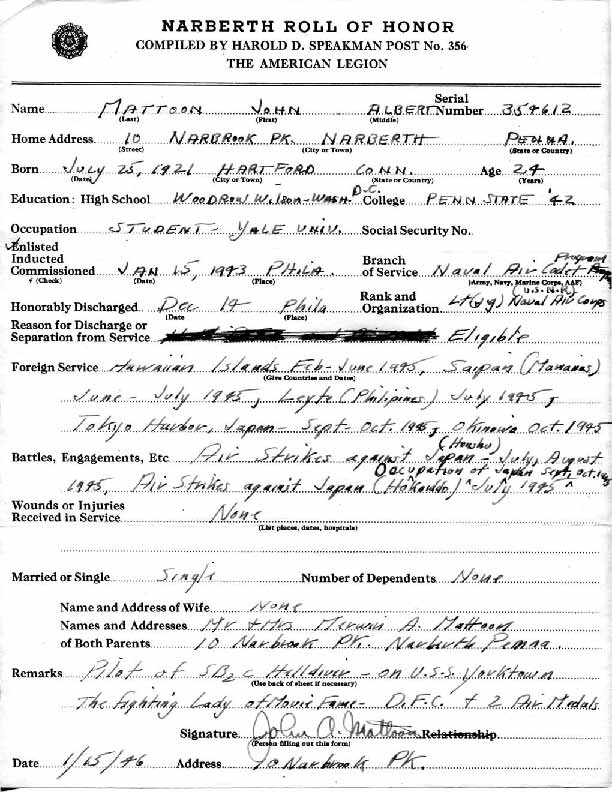 NARBERTH ROLL OF HONOR
COMPILED BY HAROLD D. SPEAKMAN POST No. 356
THE AMERICAN LEGION
Name MATTOON JOHN ALBERT Serial Number 354612
(Last) (First) (Middle)
Home Address 10 NARBROOK PK. NARBERTH PENNA.
(Street) (City or Town) (State or Country)
Born JULY 25, 1921 HARTFORD CONN. Age 24
(Date) (City or Town) (State or Country) (Years)
Education: High School WOODROW WILSON-WASH. D.C. College PENN STATE '42
Occupation STUDENT - YALE UNIV. Social Security No.
✓Enlisted
Inducted Branch Program
Commissioned JAN 15, 1943 PHILA. of Service Naval Air Cadet
(Check) (Date) (Place) (Army, Navy, Marine Corps, AAF)
Rank and (U.S.N.R)
Honorably Discharged Dec 14 Phila Organization Lt(jg) Naval Air Corps
(Date (Place)
Reason for Discharge or
Separation from Service Eligible
Foreign Service Hawaiian Islands Feb-June 1945, Saipan (Marianas)
(Give Countries and Dates)
June - July 1945, Leyte (Philipines) July 1945,
Tokyo Harbor, Japan - Sept-Oct. 1945, Okinawa Oct. 1945
(Honshu)
Battles, Engagements, Etc Air Strikes against Japan - July, August
Occupation of Japan Sept, Oct, 1945
1945, Air Strikes against Japan (Hokaiddo) ^ July 1945 ^
Wounds or Injuries
Received in Service None
(List places, dates, hospitals)
Married or Single Single Number of Dependents None
Name and Address of Wife None
Names and Addresses Mr & Mrs Merwin A. Mattoon
of Both Parents 10 Narbrook PK. Narberth Penna.
Remarks Pilot of SB2C Helldiver - on U.S.S. Yorktown
(Use back of sheet if necessary)
The Fighting Lady of Movie Fame - D.F.C. & 2 Air Medals
Signature John A. Mattoon Relationship
(Person filling out this form)
Date 1/15/46 Address 10 Narbrook PK.